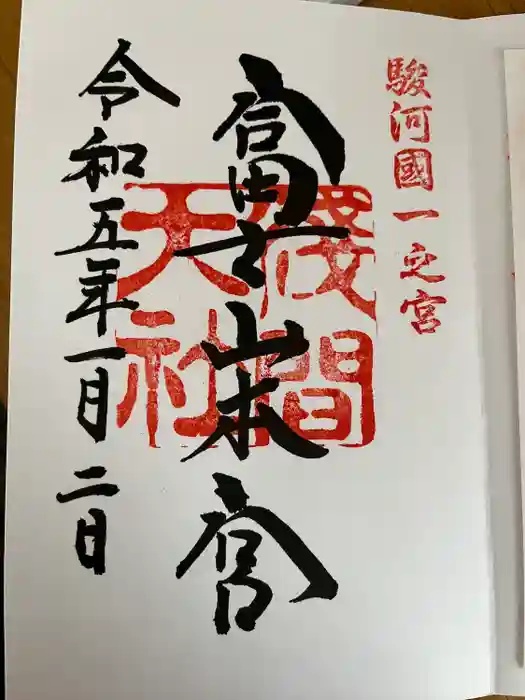 駿河國一之宮
富士山本宮
淺間
大社
令和五年一月二日